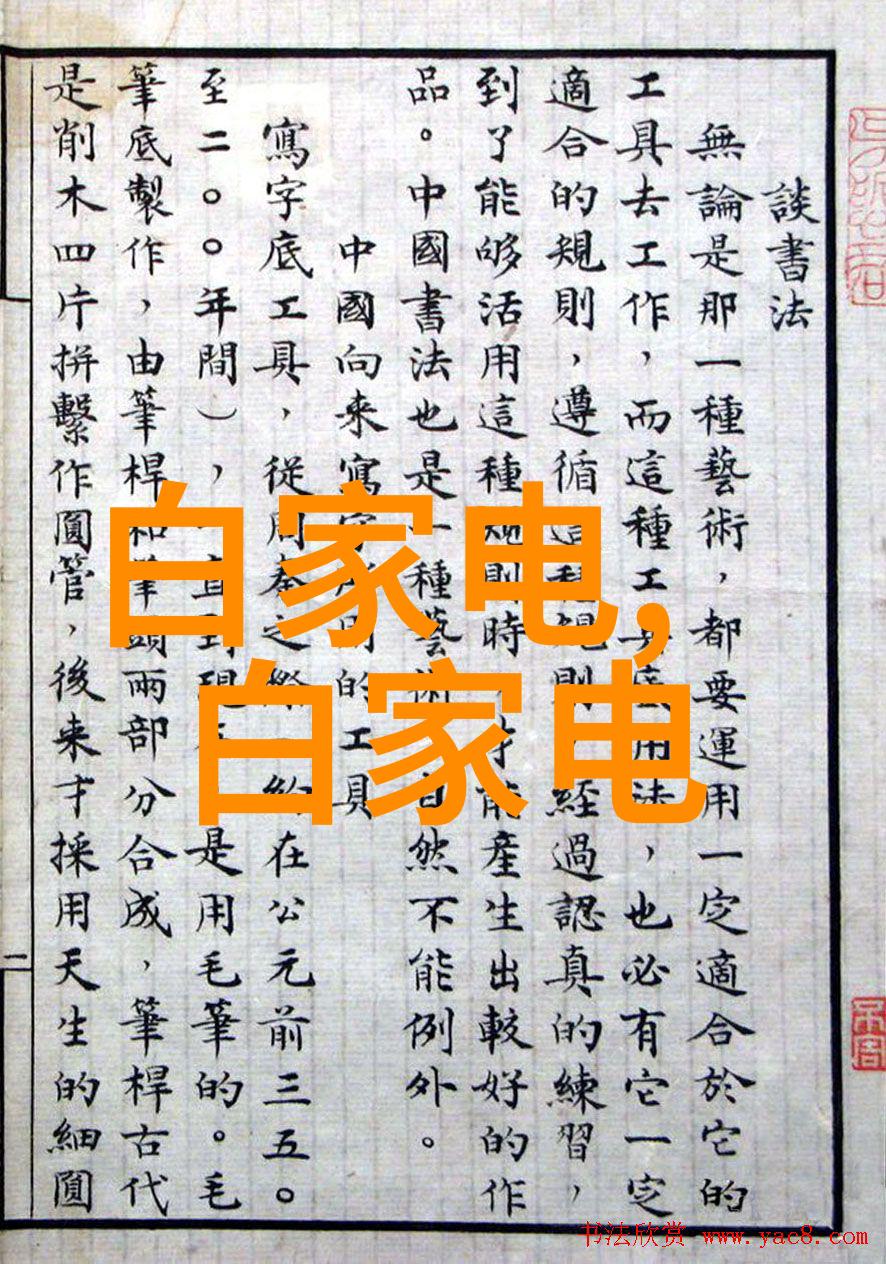 談書法
無論是那一種藝術，都要運用一定適合於它的
工具去工作，而這種工具底用法，也必有它一定
適合的規則，遵循這種規則，經過認真的練習，
到了能够活用這種規則時，才能產生出較好的作
品。中國書法也是一種藝術，自然不能例外。
中國向来寫字所用的工具
寫字底工具，從周秦之際（約在公元前三五〇
至二〇〇年間），一直到現在，是用毛筆的。毛
筆底製作，由筆桿和筆頭兩部分合成，筆桿古代
是削木四片拼繫作圓管，後来才採用天生的細圓
二
白家电,
白家电
书法欣赏 www.yac8.com